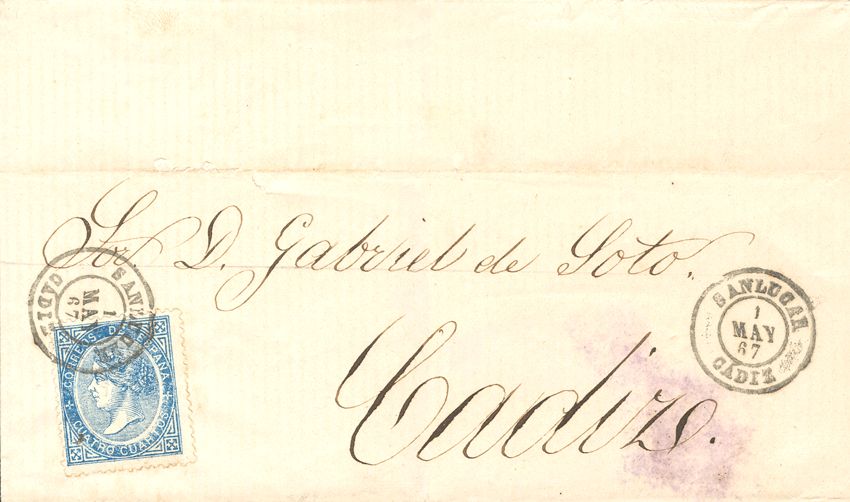 Sr D. Gabriel de Soto.
Cadiz.
SANLUCAR
1
MAY
67
CADIZ
SANLUCAR
1
MAY
67
CADIZ
CORREOS DE ESPAÑA
CUATRO CUARTOS